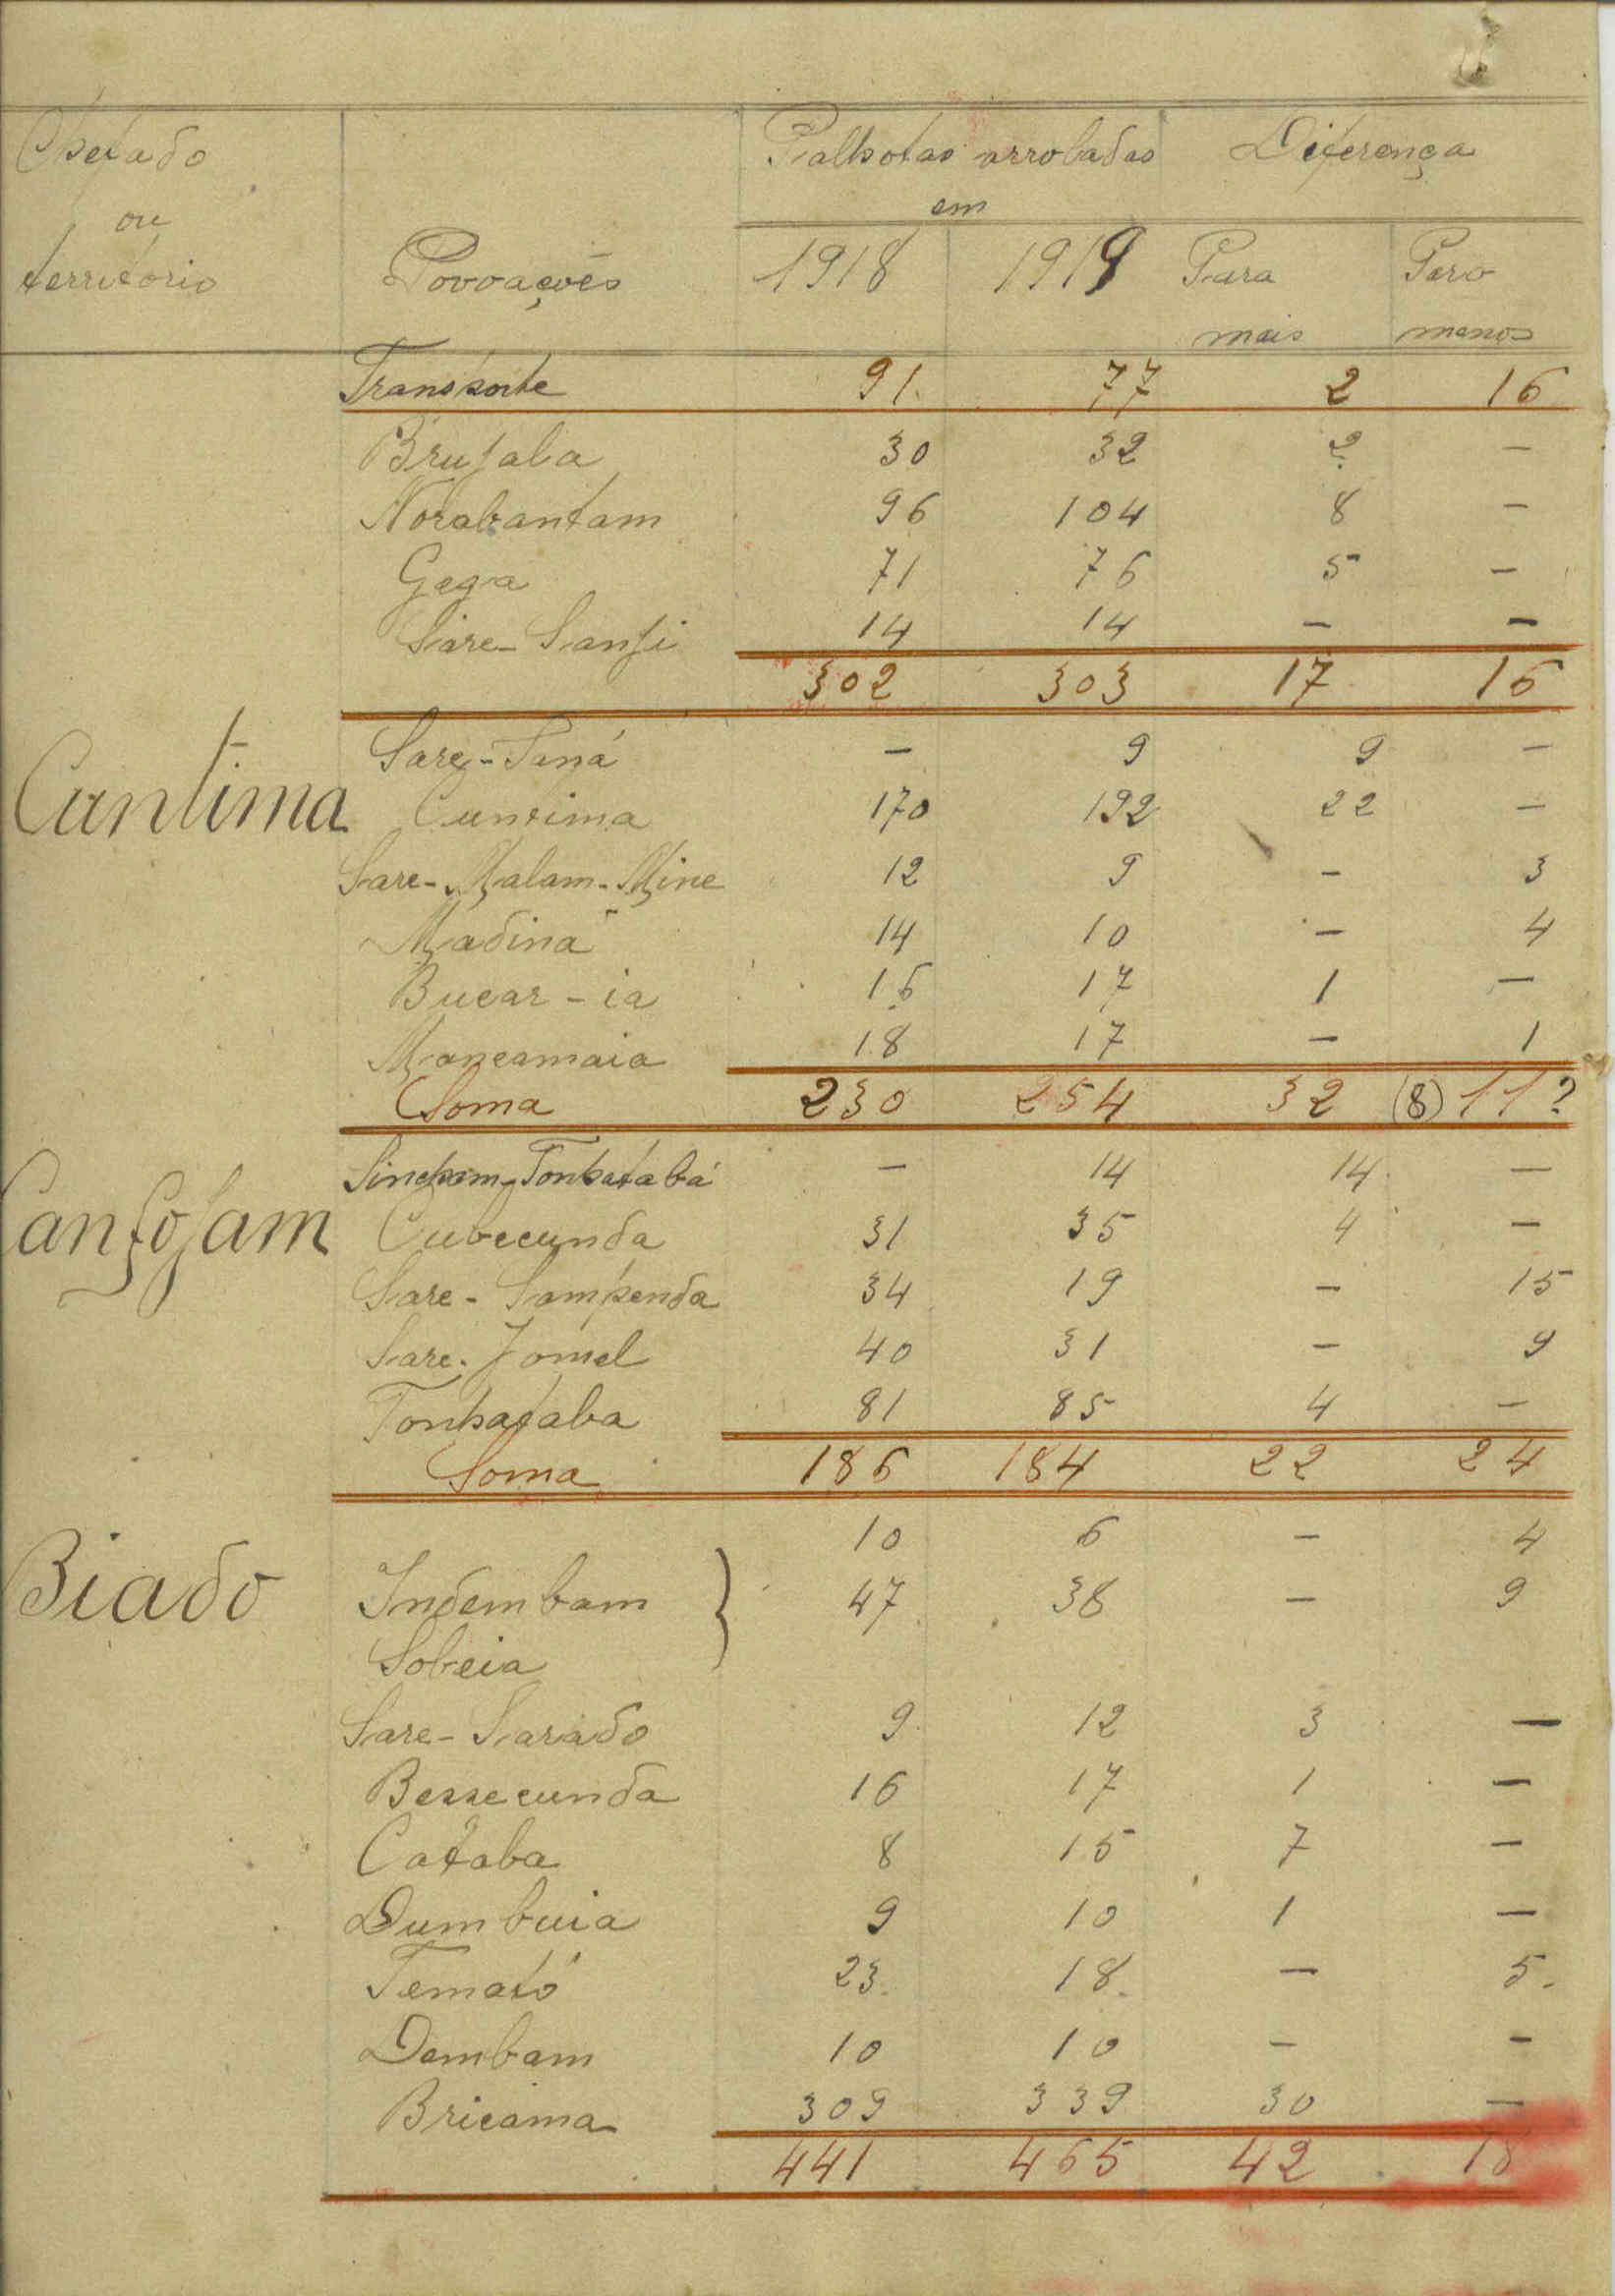 Chefado
ou
território
Povoações
Palhotas arroladas
em
Diferença
1918 1919 Para mais Para menos
Transporte 91 77 2 16
Brujaba 30 32 2 —
Norabantam 96 104 8 —
Gega 71 76 5 —
Sare-Sanji 14 14 — —
302 303 17 16
Cuntima
Sare-Taná — 9 9 —
Cuntima 170 192 22 —
Sare-Malam-Mine 12 9 — 3
Madina 14 10 — 4
Bucar-ia 16 17 1 —
Mancamaia 18 17 — 1
Soma 230 254 32 (8) 11?
Canfojam
Sincham-Tonhatabá — 14 14 —
Cubecunda 31 35 4 —
Sare-Sampenda 34 19 — 15
Sare-Jomel 40 31 — 9
Tonhataba 81 85 4 —
Soma 186 184 22 24
Biado
10 6 — 4
Indembam } 47 38 — 9
Sobeia
Sare-Sarado 9 12 3 —
Bessecunda 16 17 1 —
Cataba 8 15 7 —
Dumbuia 9 10 1 —
Temató 23 18 — 5
Dembam 10 10 — —
Bricama 309 339 30 —
441 465 42 18